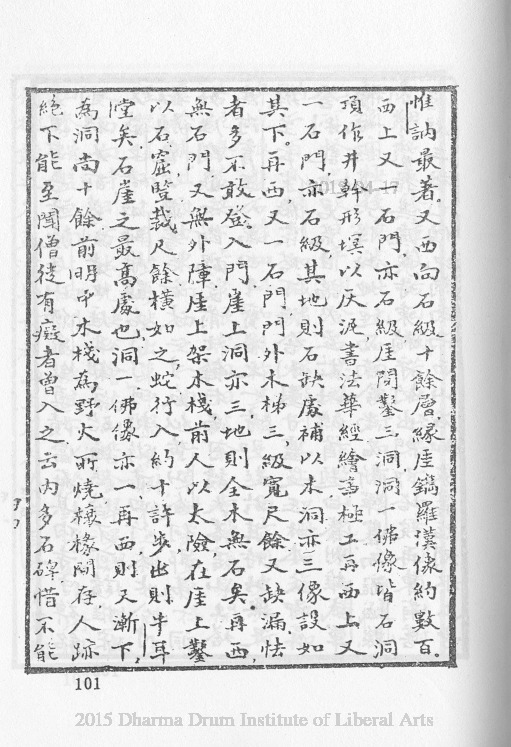 惟訥最著。又西向石級十餘層，緣崖鐫羅漢像約數百。
西上又一石門，亦石級崖間鑿三洞，洞一佛像皆石洞
頂作井幹形，塓以灰泥，書法華經繪畫極工，再西上又
一石門，亦石級，其地則石缺處補以木，洞亦三，像設如
其下。再西，又一石門，門外木梯三級，寬尺餘，又缺漏，怯
者多不敢登。入門，崖上洞亦三，地則全木無石矣。再西，
無石門，又無外障，崖上架木棧，前人以太險，在崖上鑿
以石窟，豎裁尺餘，橫如之，蛇行入，約十許步，出則半耳
堂矣。石崖之最高處也，洞一，佛像亦一，再西則又漸下，
為洞尚十餘，前明中木棧為野火所燒，榱椽間存，人跡
絕不能至，聞僧徒有癡者曾入之，云內多石碑，惜不能
101
2015 Dharma Drum Institute of Liberal Arts